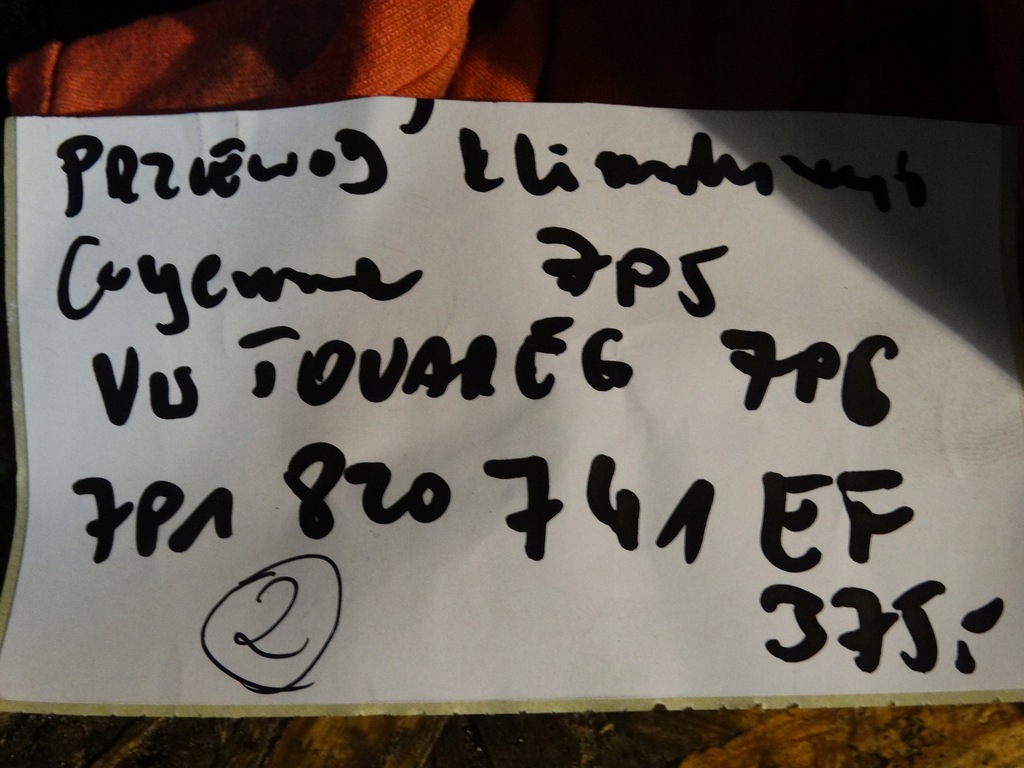 PRZEWOD klimatyzacji
Cayenne 7P5
VW TOUAREG 7P6
7P1 820 741 EF
375,-
2